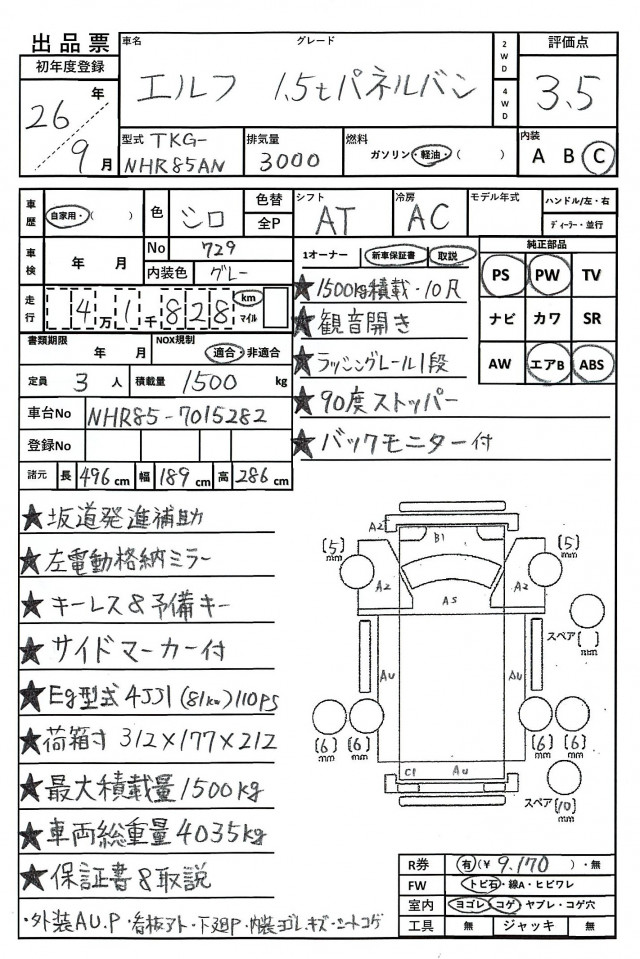 出品票
車名
グレード
2WD
4WD
評価点
初年度登録
エルフ 1.5tパネルバン
3.5
26年
9月
型式 TKG-
NHR85AN
排気量
3000
燃料
ガソリン・軽油・( )
内装
A B C
車歴
自家用・( )
色
シロ
色替
全P
シフト
AT
冷房
AC
モデル年式
ハンドル/左・右
ディーラー・並行
車検
年 月
No
729
内装色
グレー
1オーナー
新車保証書
取説
純正部品
PS PW TV
ナビ カワ SR
AW エアB ABS
走行
4万1千828
km
マイル
書類期限
年 月
NOX規制
適合・非適合
定員 3人
積載量 1500 kg
車台No
NHR85-7015282
登録No
諸元
長 496cm 幅 189cm 高 286cm
★1500kg積載・10尺
★観音開き
★ラッシングレール1段
★90度ストッパー
★バックモニター付
★坂道発進補助
★左電動格納ミラー
★キーレス&予備キー
★サイドマーカー付
★Eg型式4JJ1(81kw)110PS
★荷箱寸312×177×212
★最大積載量1500kg
★車両総重量4035kg
★保証書&取説
・外装AU.P・看板アト・下廻P・内装ヨゴレ.キズ・シートコゲ
A2
B1
(5)mm
(5)mm
A2
A2
A5
スペア( )mm
AU
AU
(6)mm
(6)mm
(6)mm
(6)mm
C1
AU
スペア(10)mm
R券
有(¥ 9.170 )・無
FW
トビ石・線A・ヒビワレ
室内
ヨゴレ・コゲ・ヤブレ・コゲ穴
工具
無
ジャッキ
無